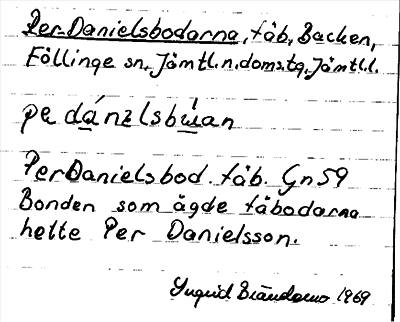 Per-Danielsbodarna, fäb, Backen,
Föllinge sn, Jämtl.n.doms.tg, Jämtl.l.
pe dánzlsbu̇an
PerDanielsbod. fäb. Gn 59
Bonden som ägde fäbodarna
hette Per Danielsson.
Yngrid 1969